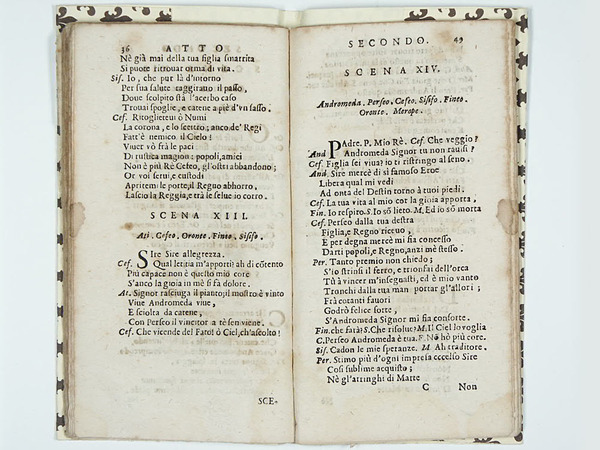 36 ATTO
Nè già mai della tua figlia smarrita
Si puote ritrouar orma di vita.
Sis. Io, che pur là d'intorno
Per sua salute raggirauo il passo,
Doue scolpito stà l'acerbo caso
Trouai spoglie, e catene a piè d'vn sasso.
Cef. Ritoglieteui ò Numi
La corona, e lo scettro; anco de' Regi
Fatt'è nemico il Cielo!
Viuer vò frà le paci
Di rustica magion: popoli, amici
Non è più Rè Cefeo, gl'ostri abbandono;
Or voi serui, e custodi
Apritemi le porte, il Regno abhorro,
Lascio la Reggia, e trà le selue io corro.
SCENA XIII.
Ati. Cefeo. Oronte. Fineo. Sisifo.
SIre Sire allegrezza.
Cef. Qual letitia m'apporti? ah di cōtento
Più capace non è questo mio core
S'anco la gioia in me si fa dolore.
At. Signor rasciuga il pianto; il mostro è vinto
Viue Andromeda viue,
E sciolta da catene,
Con Perseo il vincitor a tè sen viene.
Cef. Che vicende del Fato! ò Ciel, ch'ascolto!
SCE-
SECONDO. 49
SCENA XIV.
Andromeda. Perseo. Cefeo. Sisifo. Fineo.
Oronte. Merope.
And PAdre. P. Mio Rè. Cef. Che veggio?
Andromeda Signor tu non rauisi?
Cef. Figlia sei viua? io ti ristringo al seno.
And. Sire mercè di sì famoso Eroe
Libera qual mi vedi
Ad onta del Destin torno à tuoi piedi.
Cef. La tua vita al mio cor la gioia apporta,
Fin. Io respiro. S. Io sō lieto. M. Ed io sō morta
Cef. Perseo dalla tua destra
Figlia, e Regno riceuo,
E per degna mercè mi sia concesso
Darti popoli, e Regno, anzi mè stesso.
Per. Tanto premio non chiedo;
S'io strinsi il ferro, e trionfai dell'orca
Tù à vincer m'insegnasti, ed è mio vanto
Tronchi dalla tua man portar gl'allori;
Frà cotanti fauori
Godrò felice sorte,
S'Andromeda Signor mi sia consorte.
Fin. che farà? S. Che risolue? M. Il Ciel lo voglia
C. Perseo Andromeda è tua. F. Nō hò più core.
Sis. Cadon le mie speranze. M. Ah traditore.
Per. Stimo più d'ogni impresa eccelso Sire
Così sublime acquisto;
Nè gl'attringhi di Marte
C Non